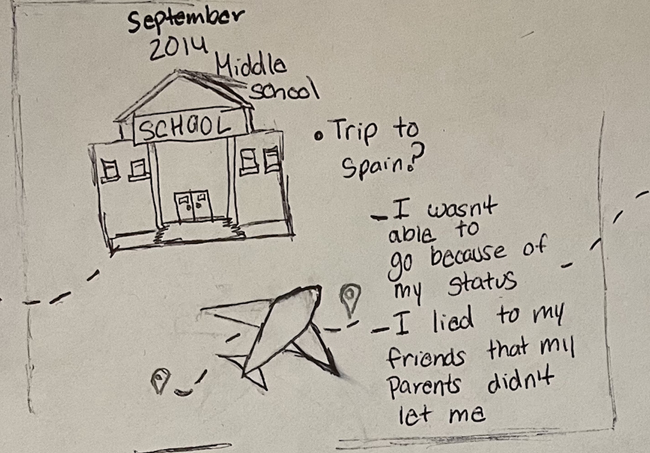 September
2014
Middle
School
SCHOOL
• Trip to
Spain?
- I wasnt
able to
go because of
my status
- I lied to my
friends that my
Parents didn't
let me